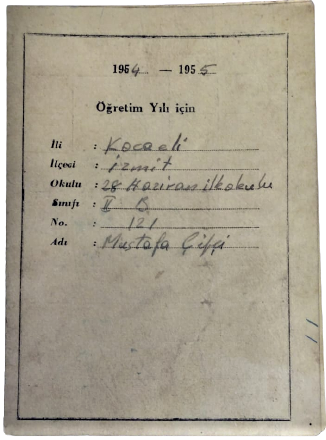 1954 — 1955
Öğretim Yılı için
İli : Kocaeli
İlçesi : İzmit
Okulu : 28 Haziran ilkokulu
Sınıfı : II B
No. : 121
Adı : Mustafa Çifçi